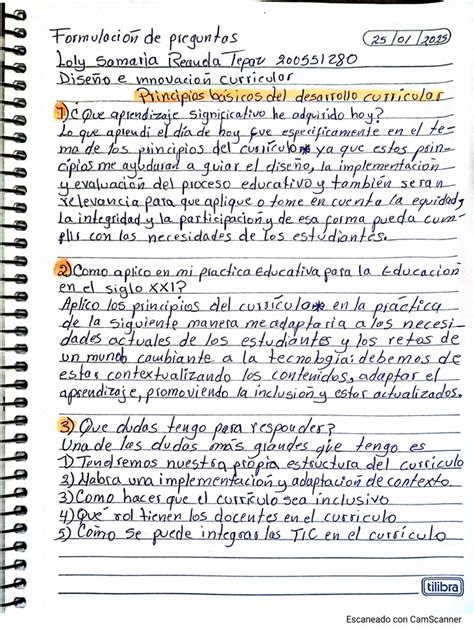 Formulación de preguntas 25/01/2025
Loly Samaria Reauda Tepaz 200551280
Diseño e innovación curricular
Principios básicos del desarrollo curricular
1) ¿Que aprendizaje significativo he adquirido hoy?
Lo que aprendí el día de hoy fue específicamente en el te-
ma de los principios del currículo ya que estos prin-
cipios me ayudaran a guiar el diseño, la implementación
y evaluación del proceso educativo y también seran
relevancia para que aplique o tome en cuenta la equidad
la integridad y la participación y de esa forma pueda cum-
plir con las necesidades de los estudiantes.
2) Como aplico en mi practica Educativa para la Educación
en el siglo XXI?
Aplico los principios del currículo en la práctica
de la siguiente manera me adaptaria a las necesi-
dades actuales de los estudiantes y los retos de
un mundo cambiante a la tecnología: debemos de
estar contextualizando los contenidos, adaptar el
aprendizaje, promoviendo la inclusión y estar actualizados.
3) Que dudas tengo para responder?
Una de las dudas más grandes que tengo es
1) Tendremos nuestra propia estructura del currículo
2) Habra una implementación y adaptación de contexto
3) Como hacer que el currículo sea inclusivo
4) Qué rol tienen los docentes en el currículo
5) Como se puede integrar las TIC en el currículo
tilibra
Escaneado con CamScanner